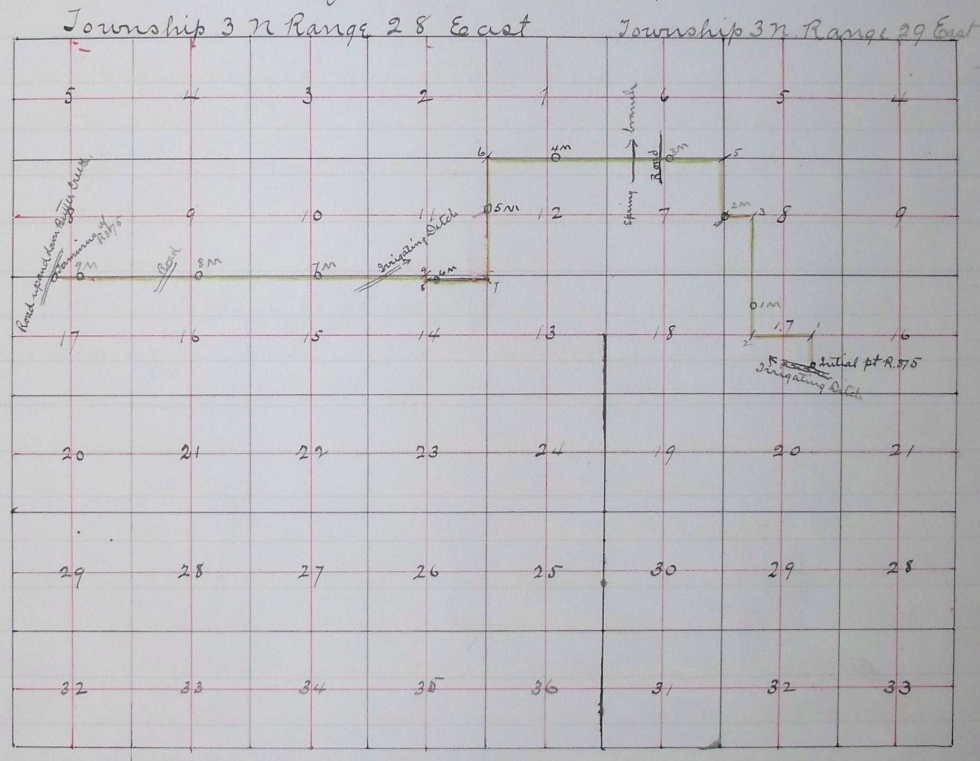 Township 3 N Range 28 East
Township 3 N. Range 29 East
5 4 3 2 1 6 5 4
6 4M 3M 5
Spring branch
Road
9 10 11 5M 12 7 2M 3 8 9
Road up and down Butter Creek
Terminus of R 375
9M Road 8M 7M Irrigating Ditch 6M 7
1M
17 16 15 14 13 18 2 17 1 16
Initial pt R. 375
Irrigating Ditch
20 21 22 23 24 19 20 21
29 28 27 26 25 30 29 28
32 33 34 35 36 31 32 33